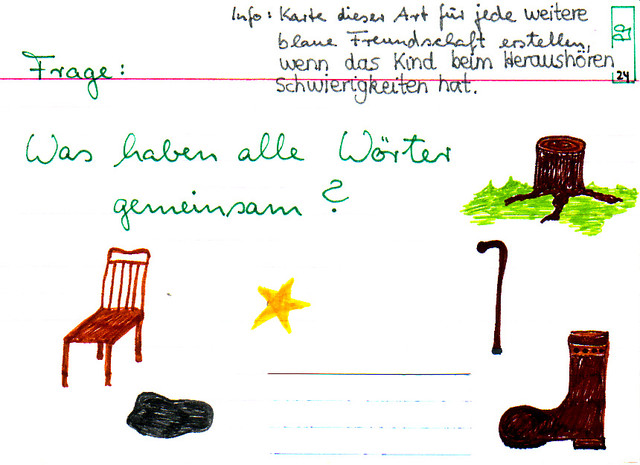 Info: Karte dieser Art für jede weitere
blaue Freundschaft erstellen,
wenn das Kind beim Heraushören
Schwierigkeiten hat.
24
Frage:
Was haben alle Wörter
gemeinsam?